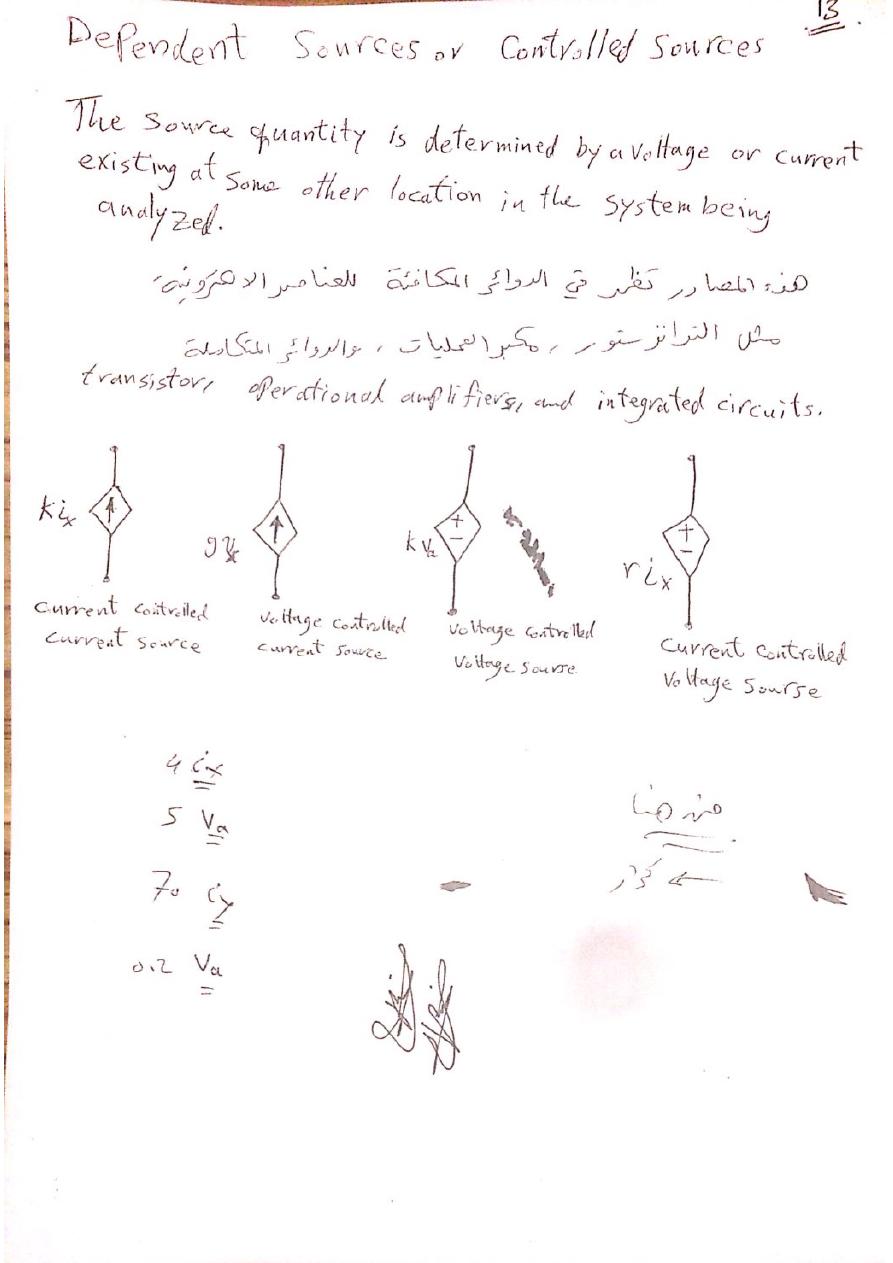 13
Dependent Sources or Controlled Sources
The source quantity is determined by a voltage or current
existing at some other location in the system being
analyzed.
هذه المصادر تظهر في الدوائر المكافئة للعناصر الالكترونية
مثل الترانزستور، مكبر العمليات، والدوائر المتكاملة
transistor, operational amplifiers, and integrated circuits.
kix
gvx
kvx
rix
Current Controlled
Current Source
Voltage Controlled
Current Source
Voltage Controlled
Voltage Sourse
Current Controlled
Voltage Sourse
4 ix
5 Va
70 iy
0.2 Va
من هنا